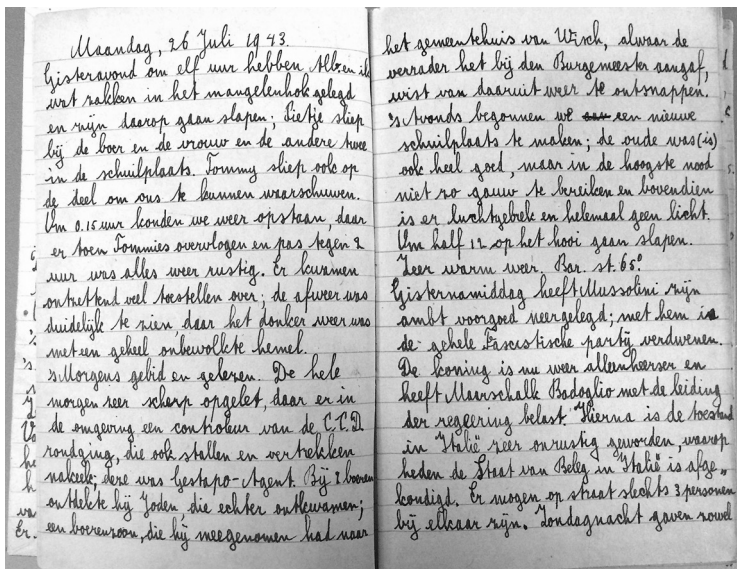 Maandag, 26 Juli 1943.
Gisteravond om elf uur hebben Alb. en ik
wat zakken in het mangelenhok gelegd
en zijn daarop gaan slapen; Sietje sliep
bij de boer en de vrouw en de andere twee
in de schuilplaats. Tommy sliep ook op
de deel om ons te kunnen waarschuwen.
Um 0.15 uur konden we weer opstaan, daar
er toen Tommies overvlogen en pas tegen 2
uur was alles weer rustig. Er kwamen
ontzettend veel toestellen over; de afweer was
duidelijk te zien, daar het donker weer was
met een geheel onbewolkte hemel.
's Morgens gebid en gelezen. De hele
morgen zeer scherp opgelet, daar er in
de omgeving een controleur van de C.C.D.
rondging, die ook stallen en vertrekken
nakeek; deze was Gestapo-Agent. Bij 2 boeren
ontdekte hij Joden die echter ontkwamen;
een boerenzoon, die hij meegenomen had naar
het gemeentehuis van Wisch, alwaar de
verrader het bij den Burgemeester aangaf,
wist van daaruit weer te ontsnappen.
's Avonds begonnen we een nieuwe
schuilplaats te maken; de oude was (is)
ook heel goed, maar in de hoogste nood
niet zo gauw te bereiken en bovendien
is er luchtgebrek en helemaal geen licht.
Um half 12 op het hooi gaan slapen.
Zeer warm weer. Bar. st. 65°
Gisternamiddag heeft Mussolini zijn
ambt voorgoed neergelegd; met hem is
de gehele Fascistische partij verdwenen.
De koning is nu weer alleenheerser en
heeft Maarschalk Badoglio met de leiding
der regeering belast. Hierna is de toestand
in "Italië" zeer onrustig geworden, waarop
heden de Staat van Beleg in "Italië" is afge„
kondigd. Er mogen op straat slechts 3 personen
bij elkaar zijn. Zondagnacht gaven zowel